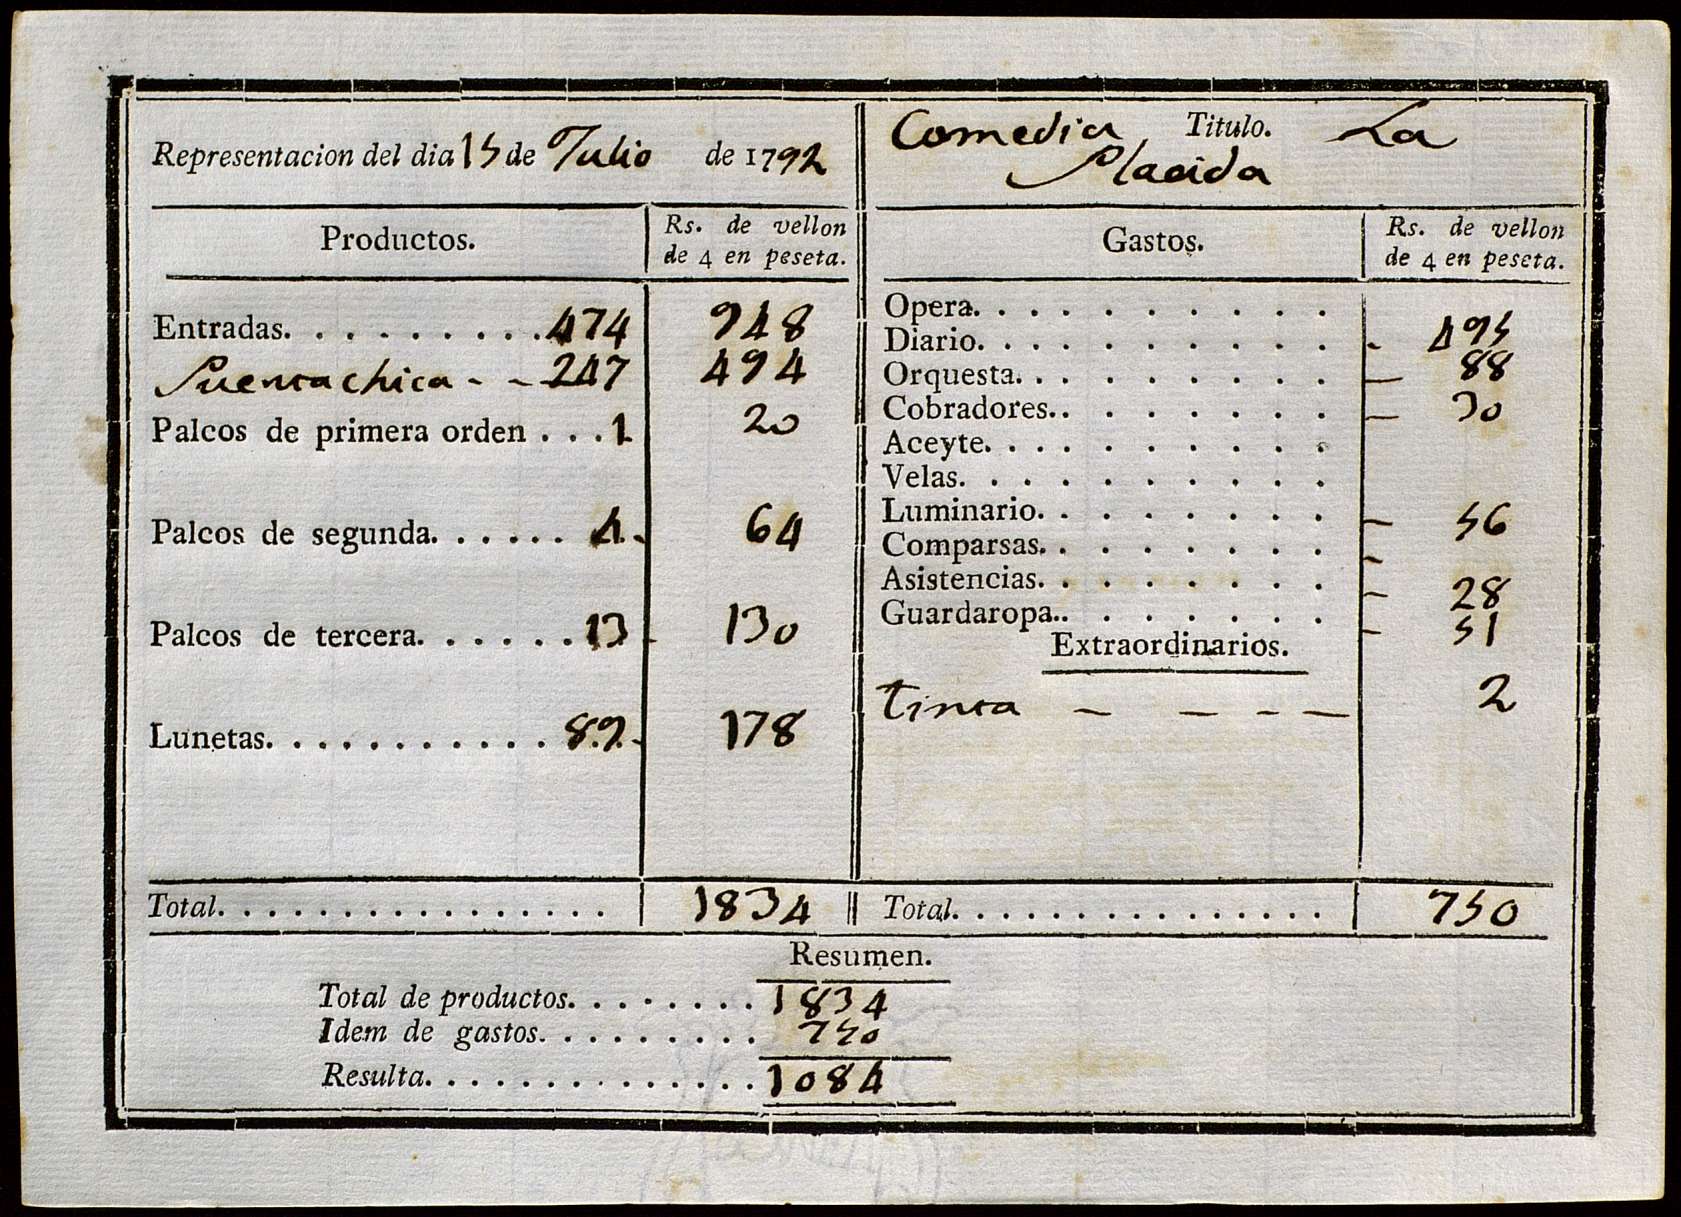 Representacion del dia 15 de Julio de 1792
Comedia Titulo. La
Placida
Productos.
Rs. de vellon
de 4 en peseta.
Entradas. . . . . . . . . . 474 948
Puerta chica - - 247 494
Palcos de primera orden . . . 1 20
Palcos de segunda. . . . . . 4. 64
Palcos de tercera. . . . . . . 13 130
Lunetas. . . . . . . . . . . . 89. 178
Total. . . . . . . . . . . . . . . . . 1834
Gastos.
Rs. de vellon
de 4 en peseta.
Opera. . . . . . . . . . .
Diario. . . . . . . . . . . 495
Orquesta. . . . . . . . . — 88
Cobradores.. . . . . . . . — 30
Aceyte. . . . . . . . . . .
Velas. . . . . . . . . . . .
Luminario. . . . . . . . — 56
Comparsas. . . . . . . . —
Asistencias. . . . . . . . — 28
Guardaropa.. . . . . . . — 51
Extraordinarios.
Tinta — — - — 2
Total. . . . . . . . . . . . . . . . 750
Resumen.
Total de productos. . . . . . . . 1834
Idem de gastos. . . . . . . . . 750
Resulta. . . . . . . . . . . . . . 1084